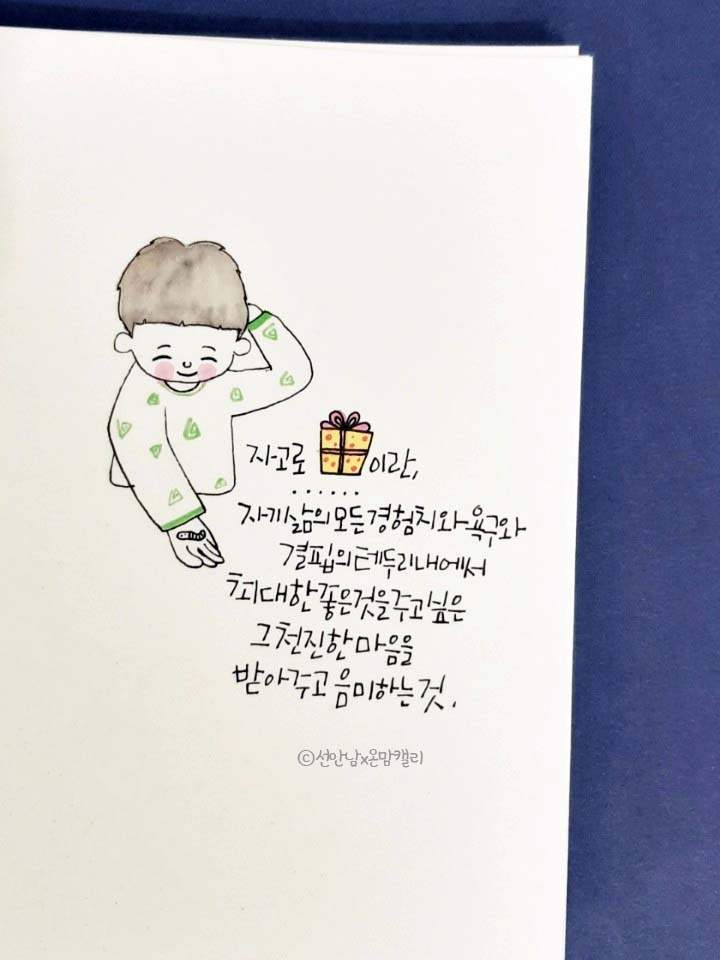 자고로 이란,
......
자기 삶의 모든 경험치와 욕구와
결핍의 테두리 내에서
최대한 좋은 것을 주고 싶은
그 천진한 마음을
받아주고 음미하는 것.
©선안남x온맘캘리